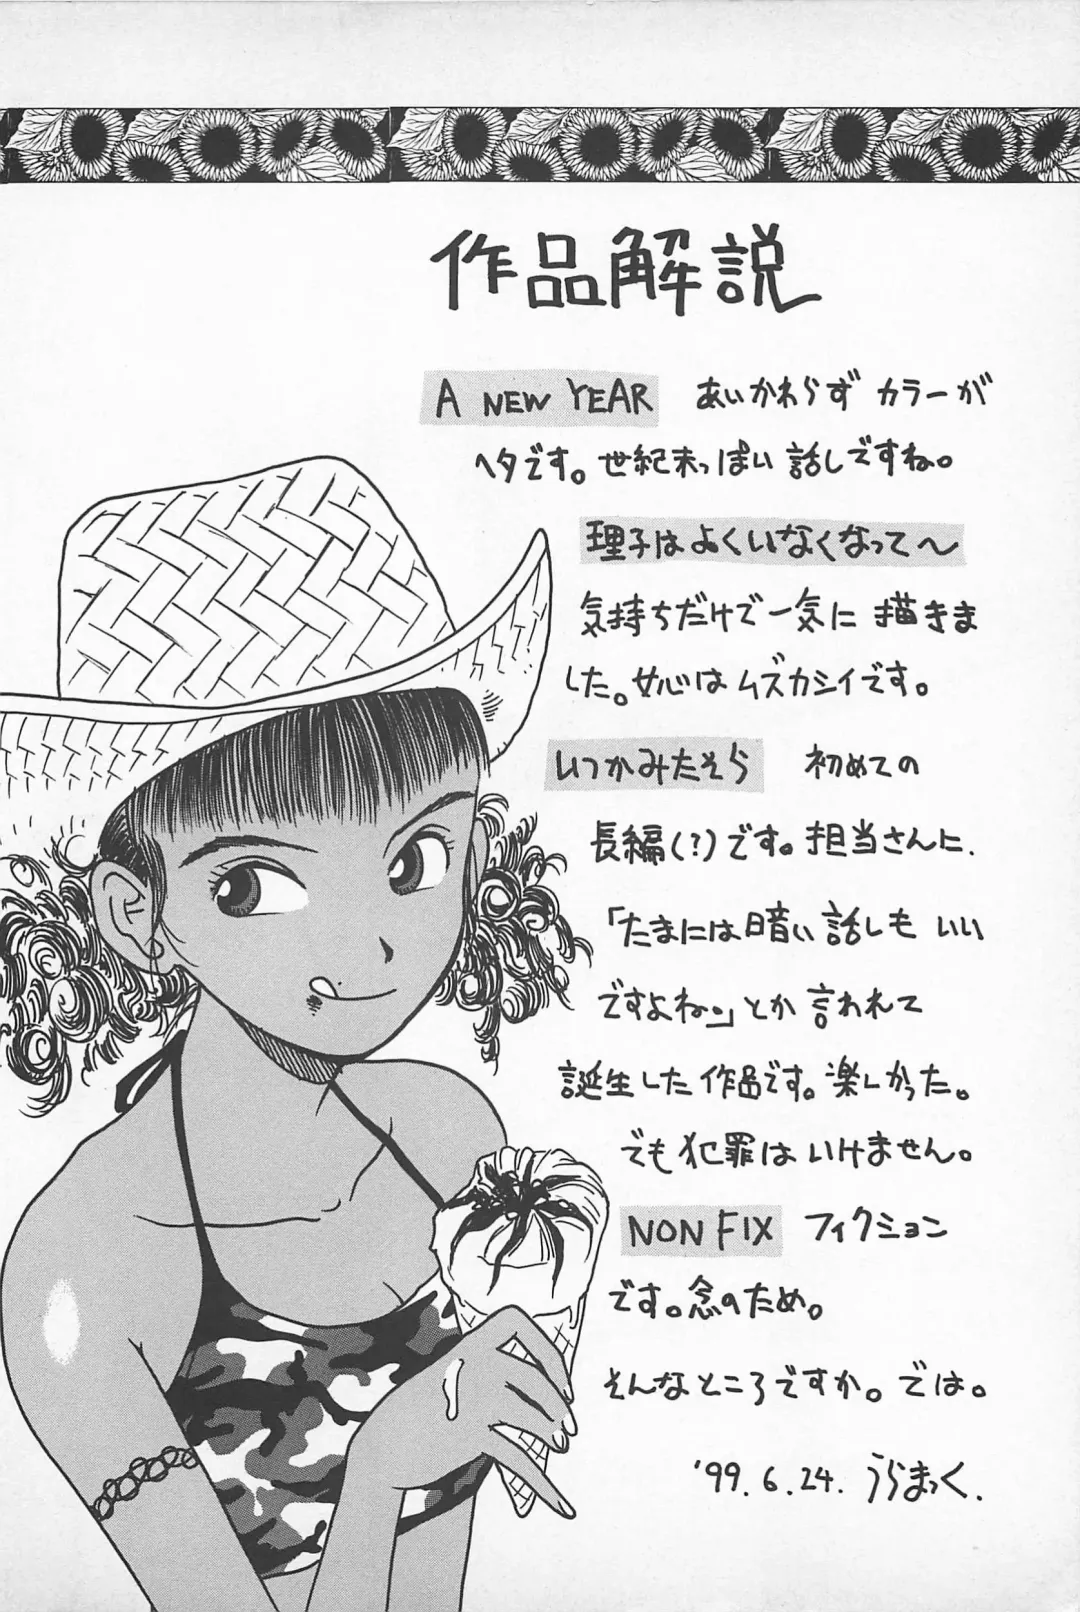 作品解説
A NEW YEAR あいかわらず カラーが
ヘタです。世紀末っぽい話しですね。
理子はよくいなくなって〜
気持ちだけで一気に描きま
した。女心はムズカシイです。
いつかみたそら 初めての
長編(?)です。担当さんに、
「たまには暗い話しも いい
ですよね。」とか言われて
誕生した作品です。楽しかった。
でも犯罪はいけません。
NON FIX フィクション
です。念のため。
そんなところですか。では。
'99.6.24. うらまっく.